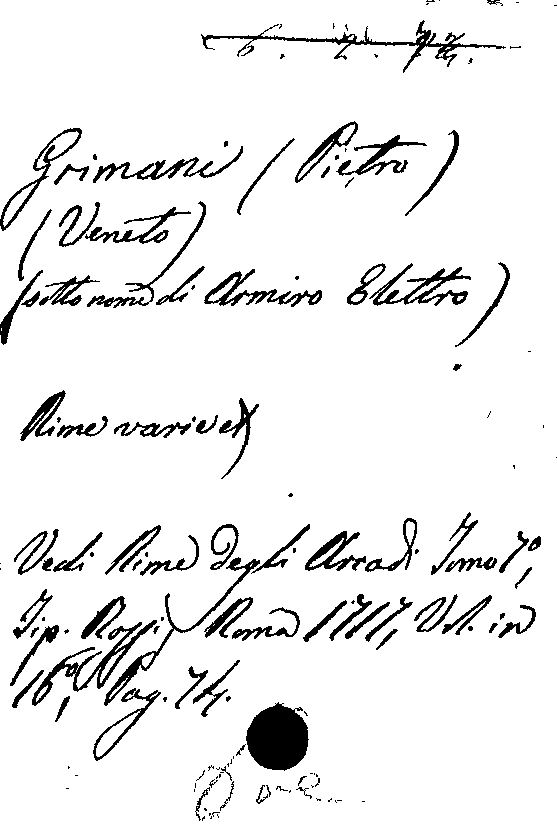 6. 2. 72.
Grimani (Pietro)
(Veneto)
(sotto nome di Armiro Elettro)
Rime varie
Vedi Rime degli Arcadi Tomo 7º,
Tip. Rossi, Roma 1717, Vol. in
16º, Pag. 74.